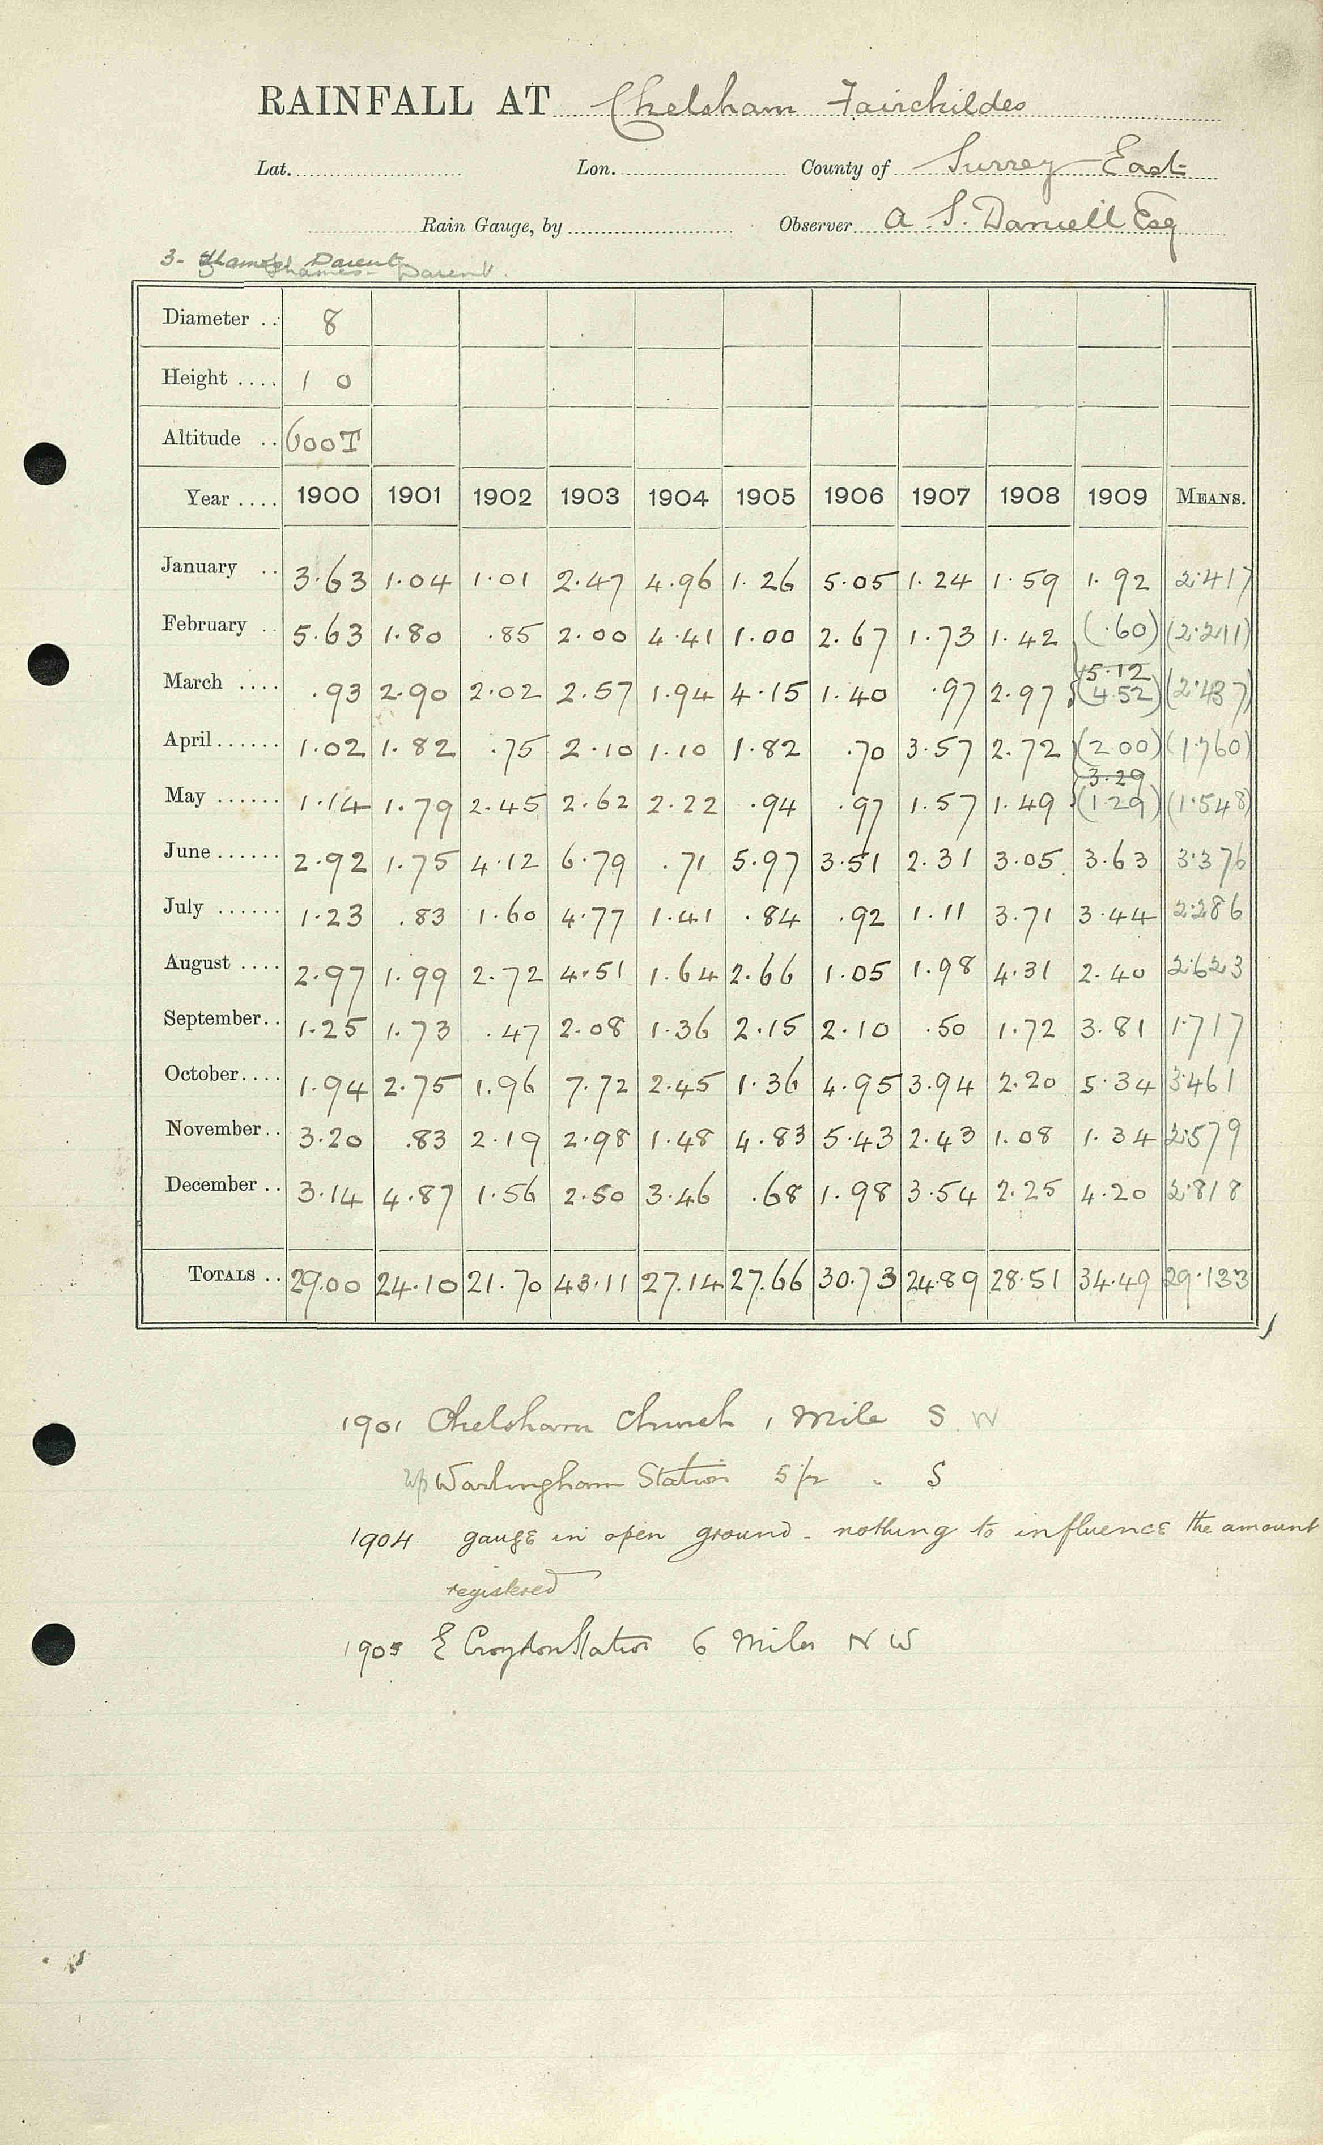 RAINFALL AT Chelsham Fairchildes
Lat. Lon. County of Surrey East
Rain Gauge, by Observer A. S. Daniell Esq
3- Thames Darent
Thames - Darent.
Diameter .. 8
Height .... 1 0
Altitude .. 600T
Year .... 1900 1901 1902 1903 1904 1905 1906 1907 1908 1909 MEANS.
January .. 3.63 1.04 1.01 2.47 4.96 1.26 5.05 1.24 1.59 1.92 2.417
February .. 5.63 1.80 .85 2.00 4.41 1.00 2.67 1.73 1.42 (.60) (2.211)
5.12
March .... .93 2.90 2.02 2.57 1.94 4.15 1.40 .97 2.97 (4.52) (2.437)
April ...... 1.02 1.82 .75 2.10 1.10 1.82 .70 3.57 2.72 (2.00) (1.760)
3.29
May ...... 1.14 1.79 2.45 2.62 2.22 .94 .97 1.57 1.49 (1.29) (1.548)
June ...... 2.92 1.75 4.12 6.79 .71 5.97 3.51 2.31 3.05 3.63 3.376
July ...... 1.23 .83 1.60 4.77 1.41 .84 .92 1.11 3.71 3.44 2.286
August .... 2.97 1.99 2.72 4.51 1.64 2.66 1.05 1.98 4.31 2.40 2.623
September .. 1.25 1.73 .47 2.08 1.36 2.15 2.10 .50 1.72 3.81 1.717
October .... 1.94 2.75 1.96 7.72 2.45 1.36 4.95 3.94 2.20 5.34 3.461
November .. 3.20 .83 2.19 2.98 1.48 4.83 5.43 2.43 1.08 1.34 2.579
December .. 3.14 4.87 1.56 2.50 3.46 .68 1.98 3.54 2.25 4.20 2.818
TOTALS .. 29.00 24.10 21.70 43.11 27.14 27.66 30.73 24.89 28.51 34.49 29.133
1901 Chelsham Church 1 Mile S.W
Warlingham Station 5½ " S
1904 gauge in open ground - nothing to influence the amount
registered
1905 E Croydon Station 6 Miles N W